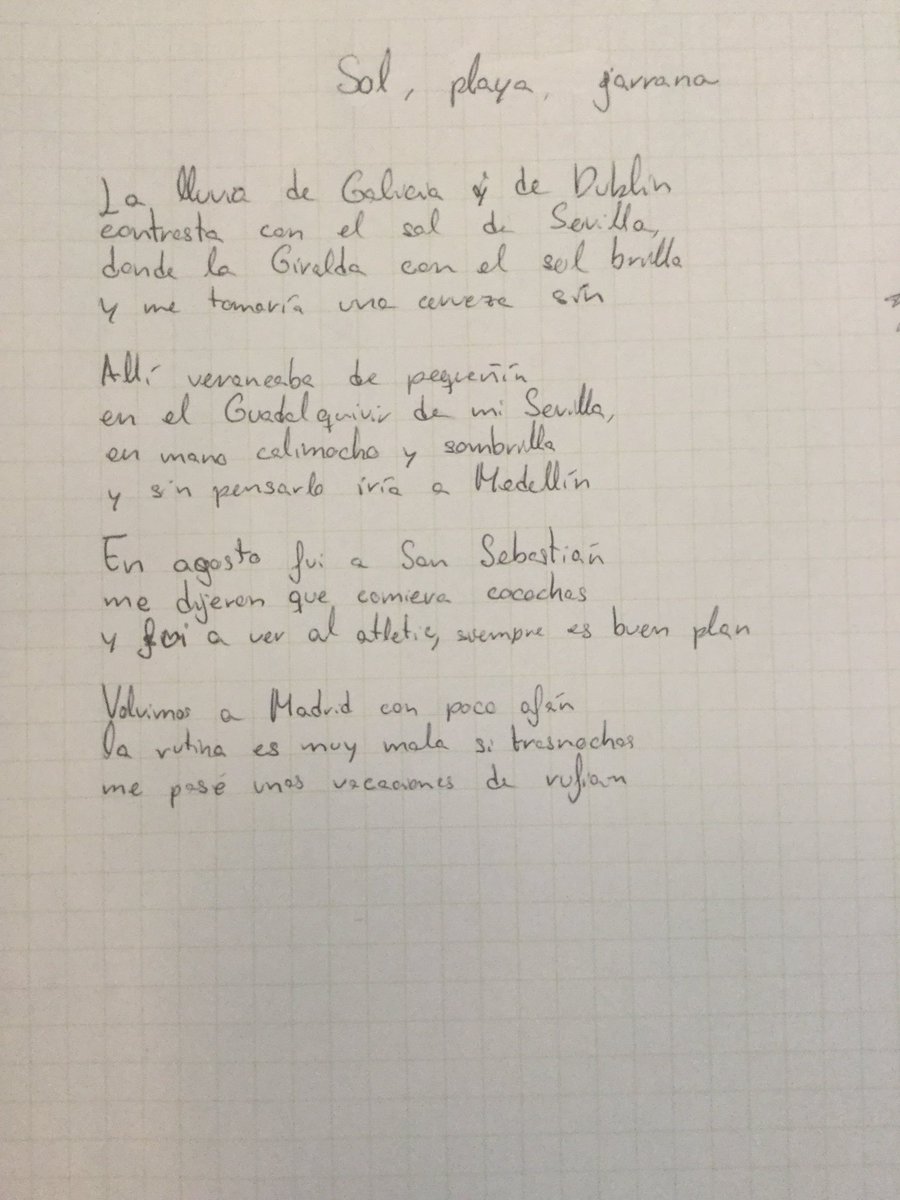 Sol, playa, jarrana
La lluvia de Galicia y de Dublín
contrasta con el sol de Sevilla,
donde la Giralda con el sol brilla
y me tomaría una cerveza sin
Allí veraneaba de pequeñín
en el Guadalquivir de mi Sevilla,
en mano calimocho y sombrilla
y sin pensarlo iría a Medellín
En agosto fui a San Sebastián
me dijeron que comiera cocochas
y fui a ver al atletic, siempre es buen plan
Volvimos a Madrid con poco afán
la rutina es muy mala si trasnochas
me pasé unas vacaciones de rufian